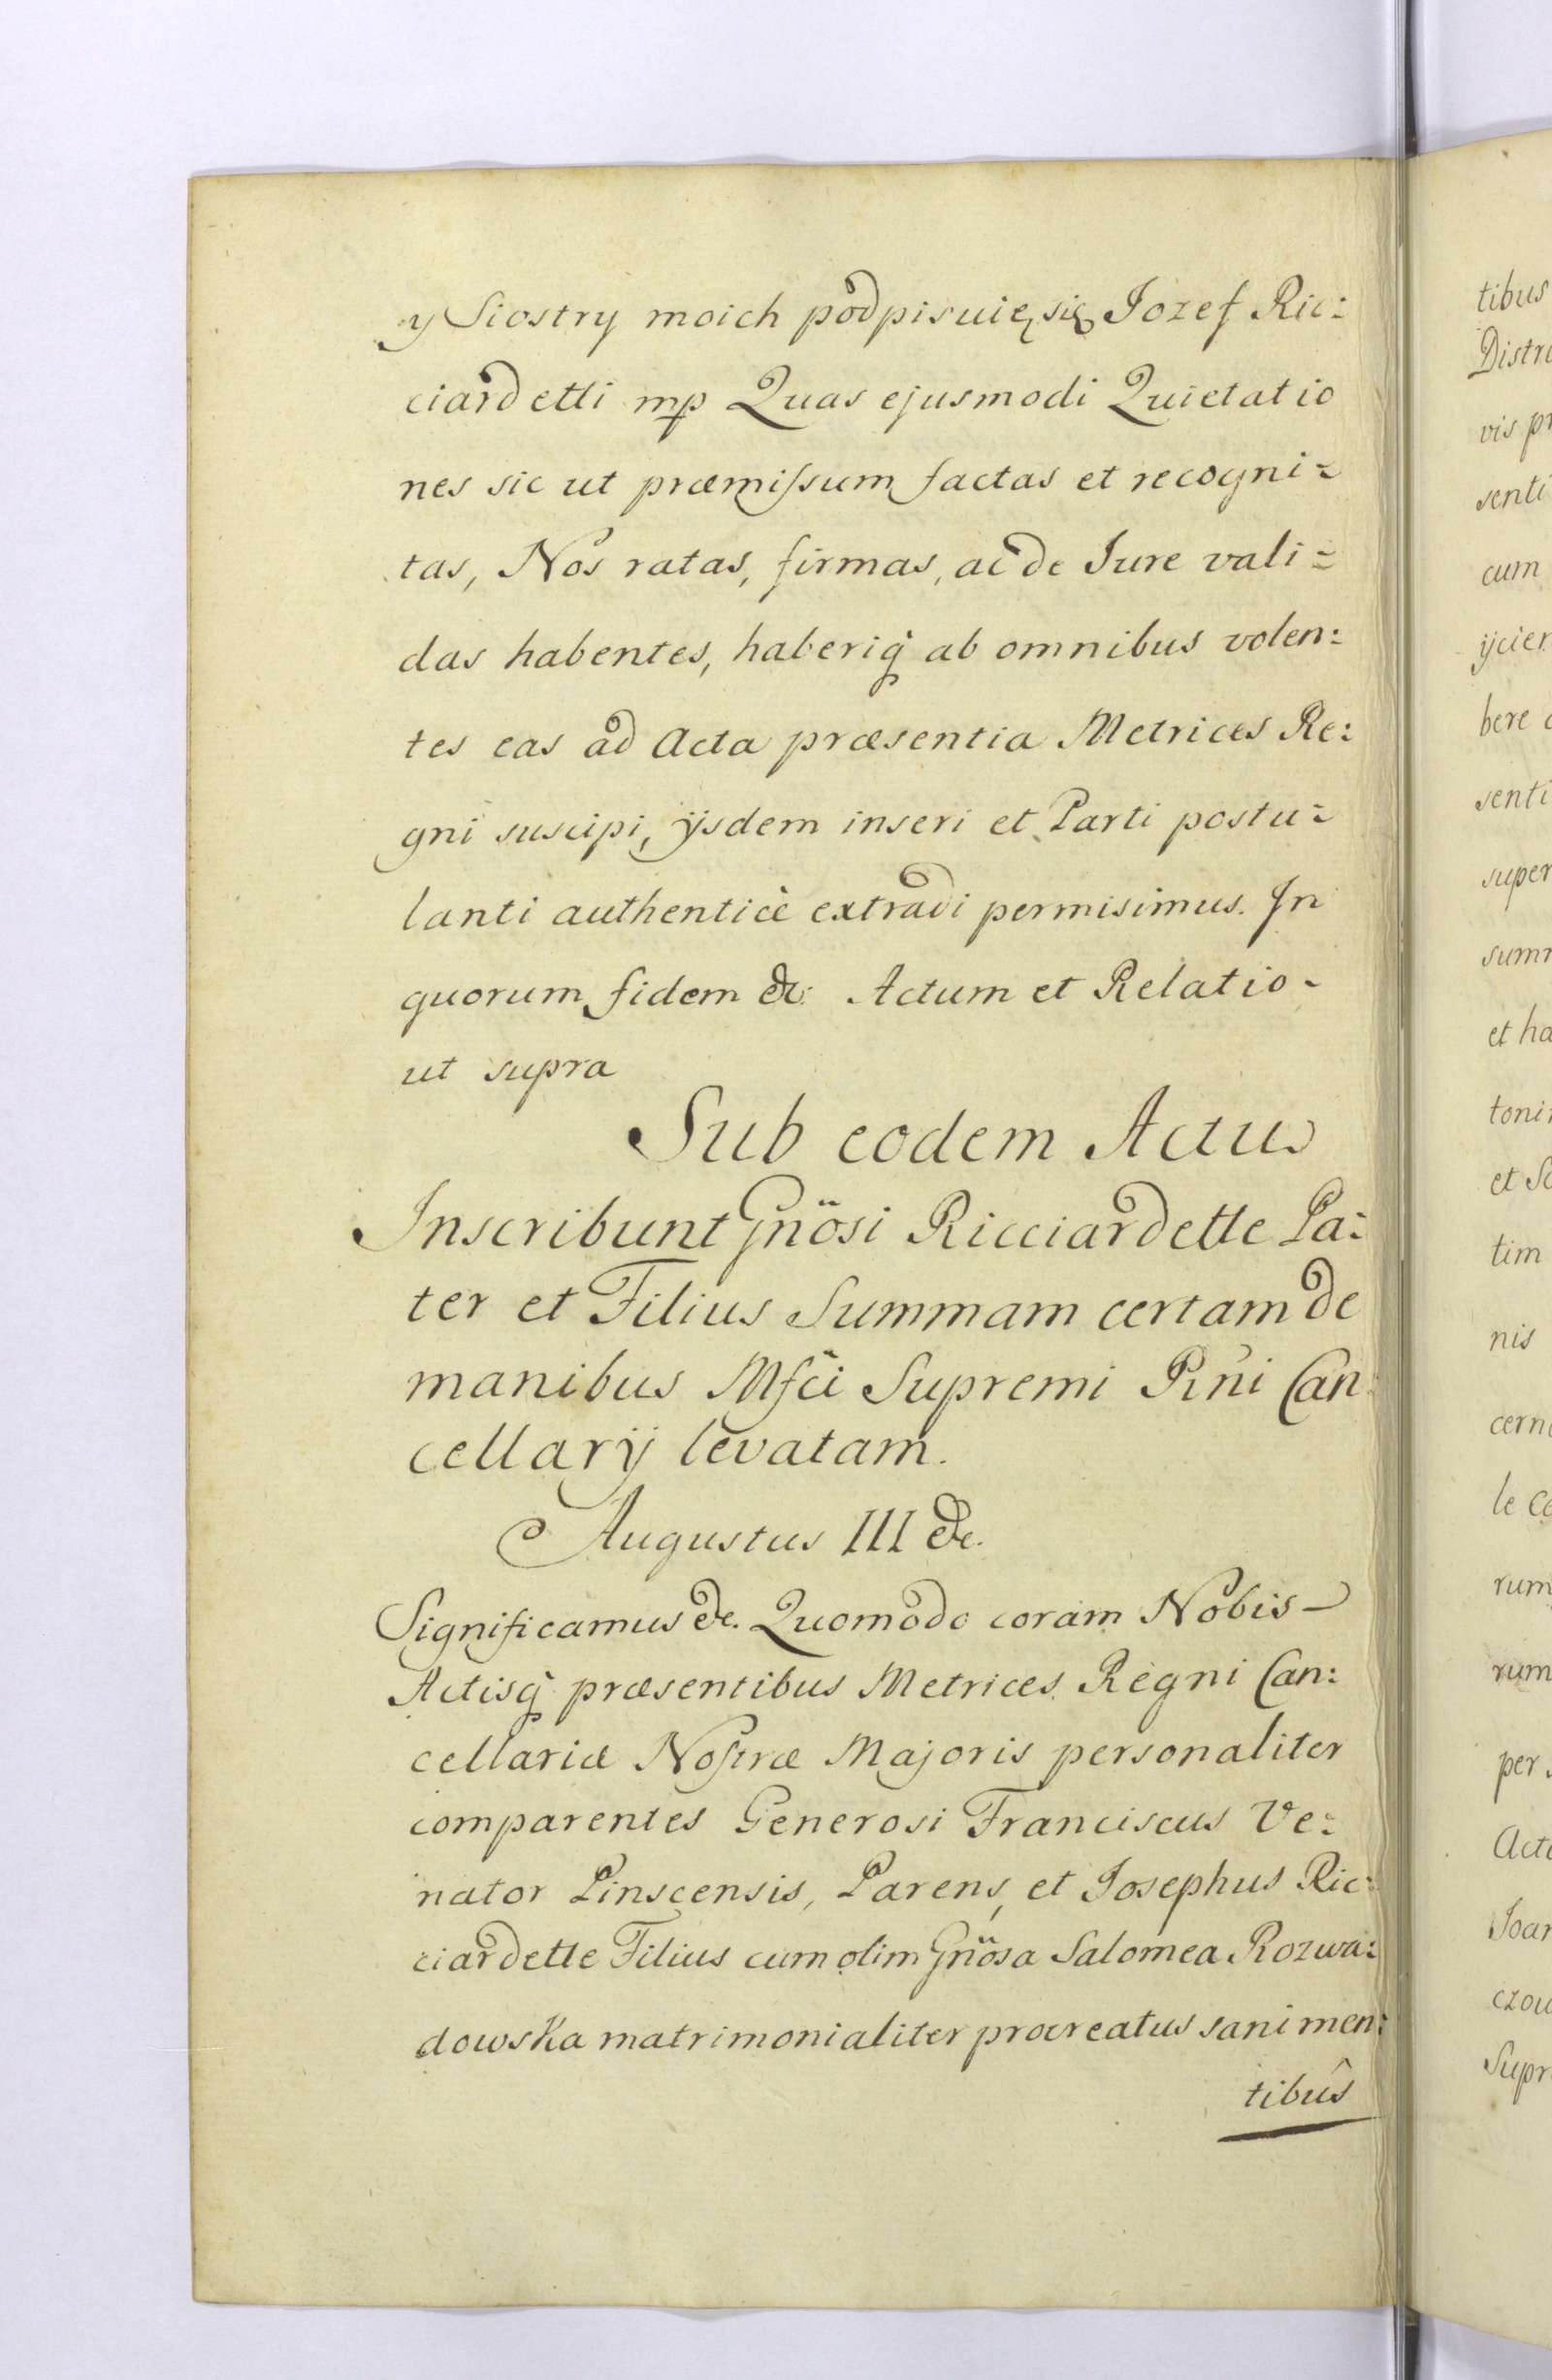 y Siostry moich podpisuię się Iozef Ric:
ciardetti mp Quas ejusmodi Quietatio
nes sic ut præmiſsum factas et recogni=
tas, Nos ratas, firmas, ac de Iure vali=
das habentes, haberiq̀ ab omnibus volen:
tes eas ad Acta præsentia Metrices Re:
gni suscipi, ijsdem inseri et Parti postu=
lanti authenticè extradi permisimus. In
quorum fidem &c: Actum et Relatio-
ut supra
Sub eodem Actu
Inscribunt Gnösi Ricciardette Pa:
ter et Filius Summam certam de
manibus Mfci Supremi Rni Can:
cellarij levatam.
Augustus III &c.
Significamus &c. Quomodo coram Nobis-
Actisq̀ præsentibus Metrices Regni Can:
cellariæ Noſtræ Majoris personaliter
comparentes Generosi Franciscus Ve:
nator Pinscensis, Parens, et Iosephus Ric:
ciardette Filius cum olim Gnösa Salomea Rozwa:
dowska matrimonialiter procreatus sani men:
tibus
tibus
Distri
vis pr
senti
cum
ijcien
bere
senti
super
summ
et ha
toni
et
tim
nis
cern
le
rum
rum
per
Acti
Ioan
czow
Supr